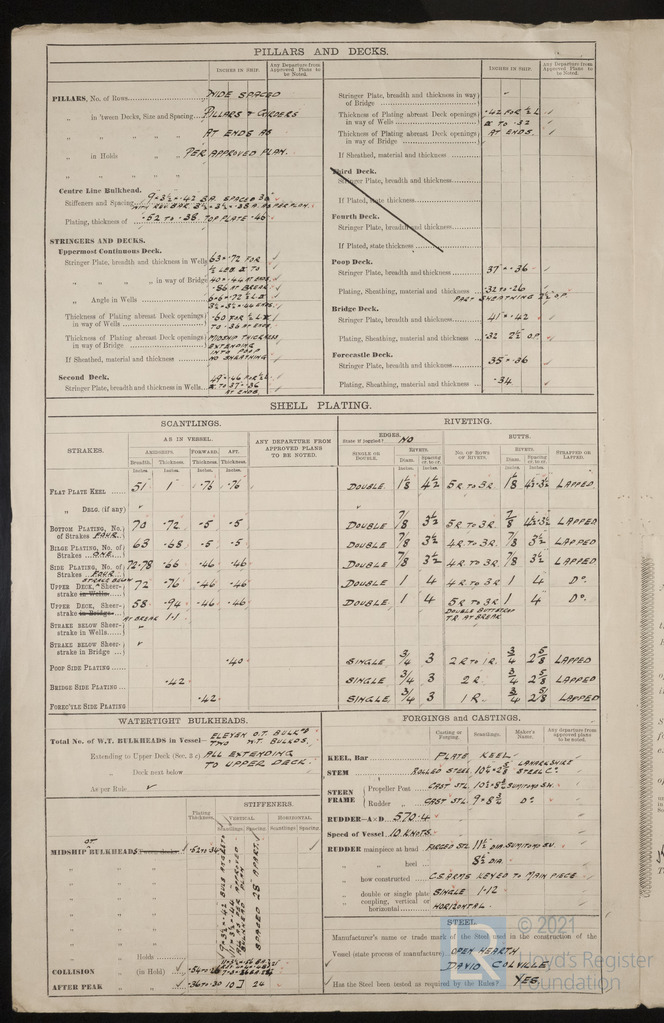 PILLARS AND DECKS.
INCHES IN SHIP.
Any Departure from Approved Plans to be Noted.
PILLARS, No. of Rows
WIDE SPACED
„ in 'tween Decks, Size and Spacing
PILLARS & GIRDERS
„ „ „ „
AT ENDS AS
„ in Holds „ PER APPROVED PLAN.
„ „ „ „
Centre Line Bulkhead.
Stiffeners and Spacing
Plating, thickness of .52 TO .38. TOP PLATE .46
STRINGERS AND DECKS.
Uppermost Continuous Deck.
Stringer Plate, breadth and thickness in Wells 63 × .72 FOR
½ L & B TO
„ „ „ „ in way of Bridge 40 × .44 AT ENDS.
.86 AT BREAK
„ Angle in Wells 6×6×.72 ½ L
3½×3½×.44 ENDS.
Thickness of Plating abreast Deck openings in way of Wells .60 FOR ½ L
TO .36 AT ENDS.
Thickness of Plating abreast Deck openings in way of Bridge MIDSHIP THICKNESS
EXTENDING
INTO POOP
If Sheathed, material and thickness NO SHEATHING
Second Deck.
Stringer Plate, breadth and thickness in Wells 49 × .46 FOR ½ L
TO 37 × .36
AT ENDS.
INCHES IN SHIP.
Any Departure from Approved Plans to be Noted.
Stringer Plate, breadth and thickness in way of Bridge „
Thickness of Plating abreast Deck openings in way of Wells .42 FOR ½ L
TO .32
Thickness of Plating abreast Deck openings in way of Bridge AT ENDS.
If Sheathed, material and thickness
Third Deck.
Stringer Plate, breadth and thickness
If Plated, state thickness
Fourth Deck.
Stringer Plate, breadth and thickness
If Plated, state thickness
Poop Deck.
Stringer Plate, breadth and thickness 37 × .36
Plating, Sheathing, material and thickness .32 TO .26
PART SHEATHING 2½ O.P.
Bridge Deck.
Stringer Plate, breadth and thickness 41 × .42
Plating, Sheathing, material and thickness .32 2½ O.P.
Forecastle Deck.
Stringer Plate, breadth and thickness 35 × .36
Plating, Sheathing, material and thickness .34
SHELL PLATING.
SCANTLINGS.
RIVETING.
STRAKES.
AS IN VESSEL.
ANY DEPARTURE FROM APPROVED PLANS TO BE NOTED.
EDGES.
State if joggled? NO
BUTTS.
AMIDSHIPS. FORWARD. AFT.
Breadth. Thickness. Thickness. Thickness.
SINGLE OR DOUBLE.
RIVETS.
Diam. Spacing cr. to cr.
NO. OF ROWS OF RIVETS.
RIVETS.
Diam. Spacing cr. to cr.
STRAPPED OR LAPPED?
Inches. Inches. Inches. Inches. Inches. Inches. Inches. Inches.
FLAT PLATE KEEL 51 1 .76 .76 DOUBLE 1⅛ 4½ 5 R TO 3 R 1⅛ LAPPED
„ DBLG. (if any)
BOTTOM PLATING, No. of Strakes FOUR. 70 .72 .5 .5 DOUBLE ⅞ 3½ 5 R TO 3 R ⅞ LAPPED
BILGE PLATING, No. of Strakes ONE 63 .68 .5 .5 DOUBLE ⅞ 3½ 4 R TO 3 R ⅞ 3½ LAPPED
SIDE PLATING, No. of Strakes FOUR 72-78 .66 .46 .46 DOUBLE ⅞ 3½ 4 R TO 3 R ⅞ 3½ LAPPED
UPPER DECK, Sheer-strake in Wells STRAKE BELOW 72 .76 .46 .46 DOUBLE 1 4 4 R TO 3 R 1 4 Do.
UPPER DECK, Sheer-strake in Bridge 58 .94 .46 .46 DOUBLE 1 4 5 R TO 3 R 1 4 Do.
AT BREAK 1.1
DOUBLE BUTTSTRAP
T.R AT BREAK
STRAKE BELOW Sheer-strake in Wells
STRAKE BELOW Sheer-strake in Bridge
POOP SIDE PLATING .40 SINGLE ¾ 3 2 R TO 1 R. ¾ 2⅝ LAPPED
BRIDGE SIDE PLATING .42 SINGLE ¾ 3 2 R. ¾ 2⅝ LAPPED
FORE'CTLE SIDE PLATING .42 SINGLE ¾ 3 1 R. ¾ 2⅝ LAPPED
WATERTIGHT BULKHEADS.
Total No. of W.T. BULKHEADS in Vessel— ELEVEN O.T. BULKDS
TWO W.T. BULKDS.
Extending to Upper Deck (Sec. 3 c) ALL EXTENDING
TO UPPER DECK.
„ Deck next below
As per Rule
Plating Thickness.
STIFFENERS.
VERTICAL. HORIZONTAL.
Scantlings. Spacing. Scantlings. Spacing.
OT
MIDSHIP BULKHEADS .52 TO .34
SPACED 28 APART.
Holds
COLLISION „ (in Hold)
AFTER PEAK „ „ .36 TO .30 10 24
FORGINGS and CASTINGS.
Casting or Forging. Scantlings. Maker's Name. Any departure from approved plans to be noted.
KEEL, Bar PLATE KEEL
STEM ROLLED STEEL LANARKSHIRE
STEEL Co.
STERN FRAME
Propeller Post CAST STL. SUMITOMO
Rudder „ CAST STL. Do.
RUDDER—A×D 570.4
Speed of Vessel 10 KNOTS.
RUDDER mainpiece at head FORGED STL 11½ DIA. SUMITOMO
„ „ heel 8½ DIA.
„ how constructed C.S ARMS KEYED TO MAIN PIECE
„ double or single plate SINGLE 1.12
„ coupling, vertical or horizontal HORIZONTAL.
STEEL.
Manufacturer's name or trade mark of the Steel used in the construction of the
Vessel (state process of manufacture) OPEN HEARTH.
DAVID COLVILLE
Has the Steel been tested as required by the Rules? YES.
© 2021
Lloyd's Register
Foundation